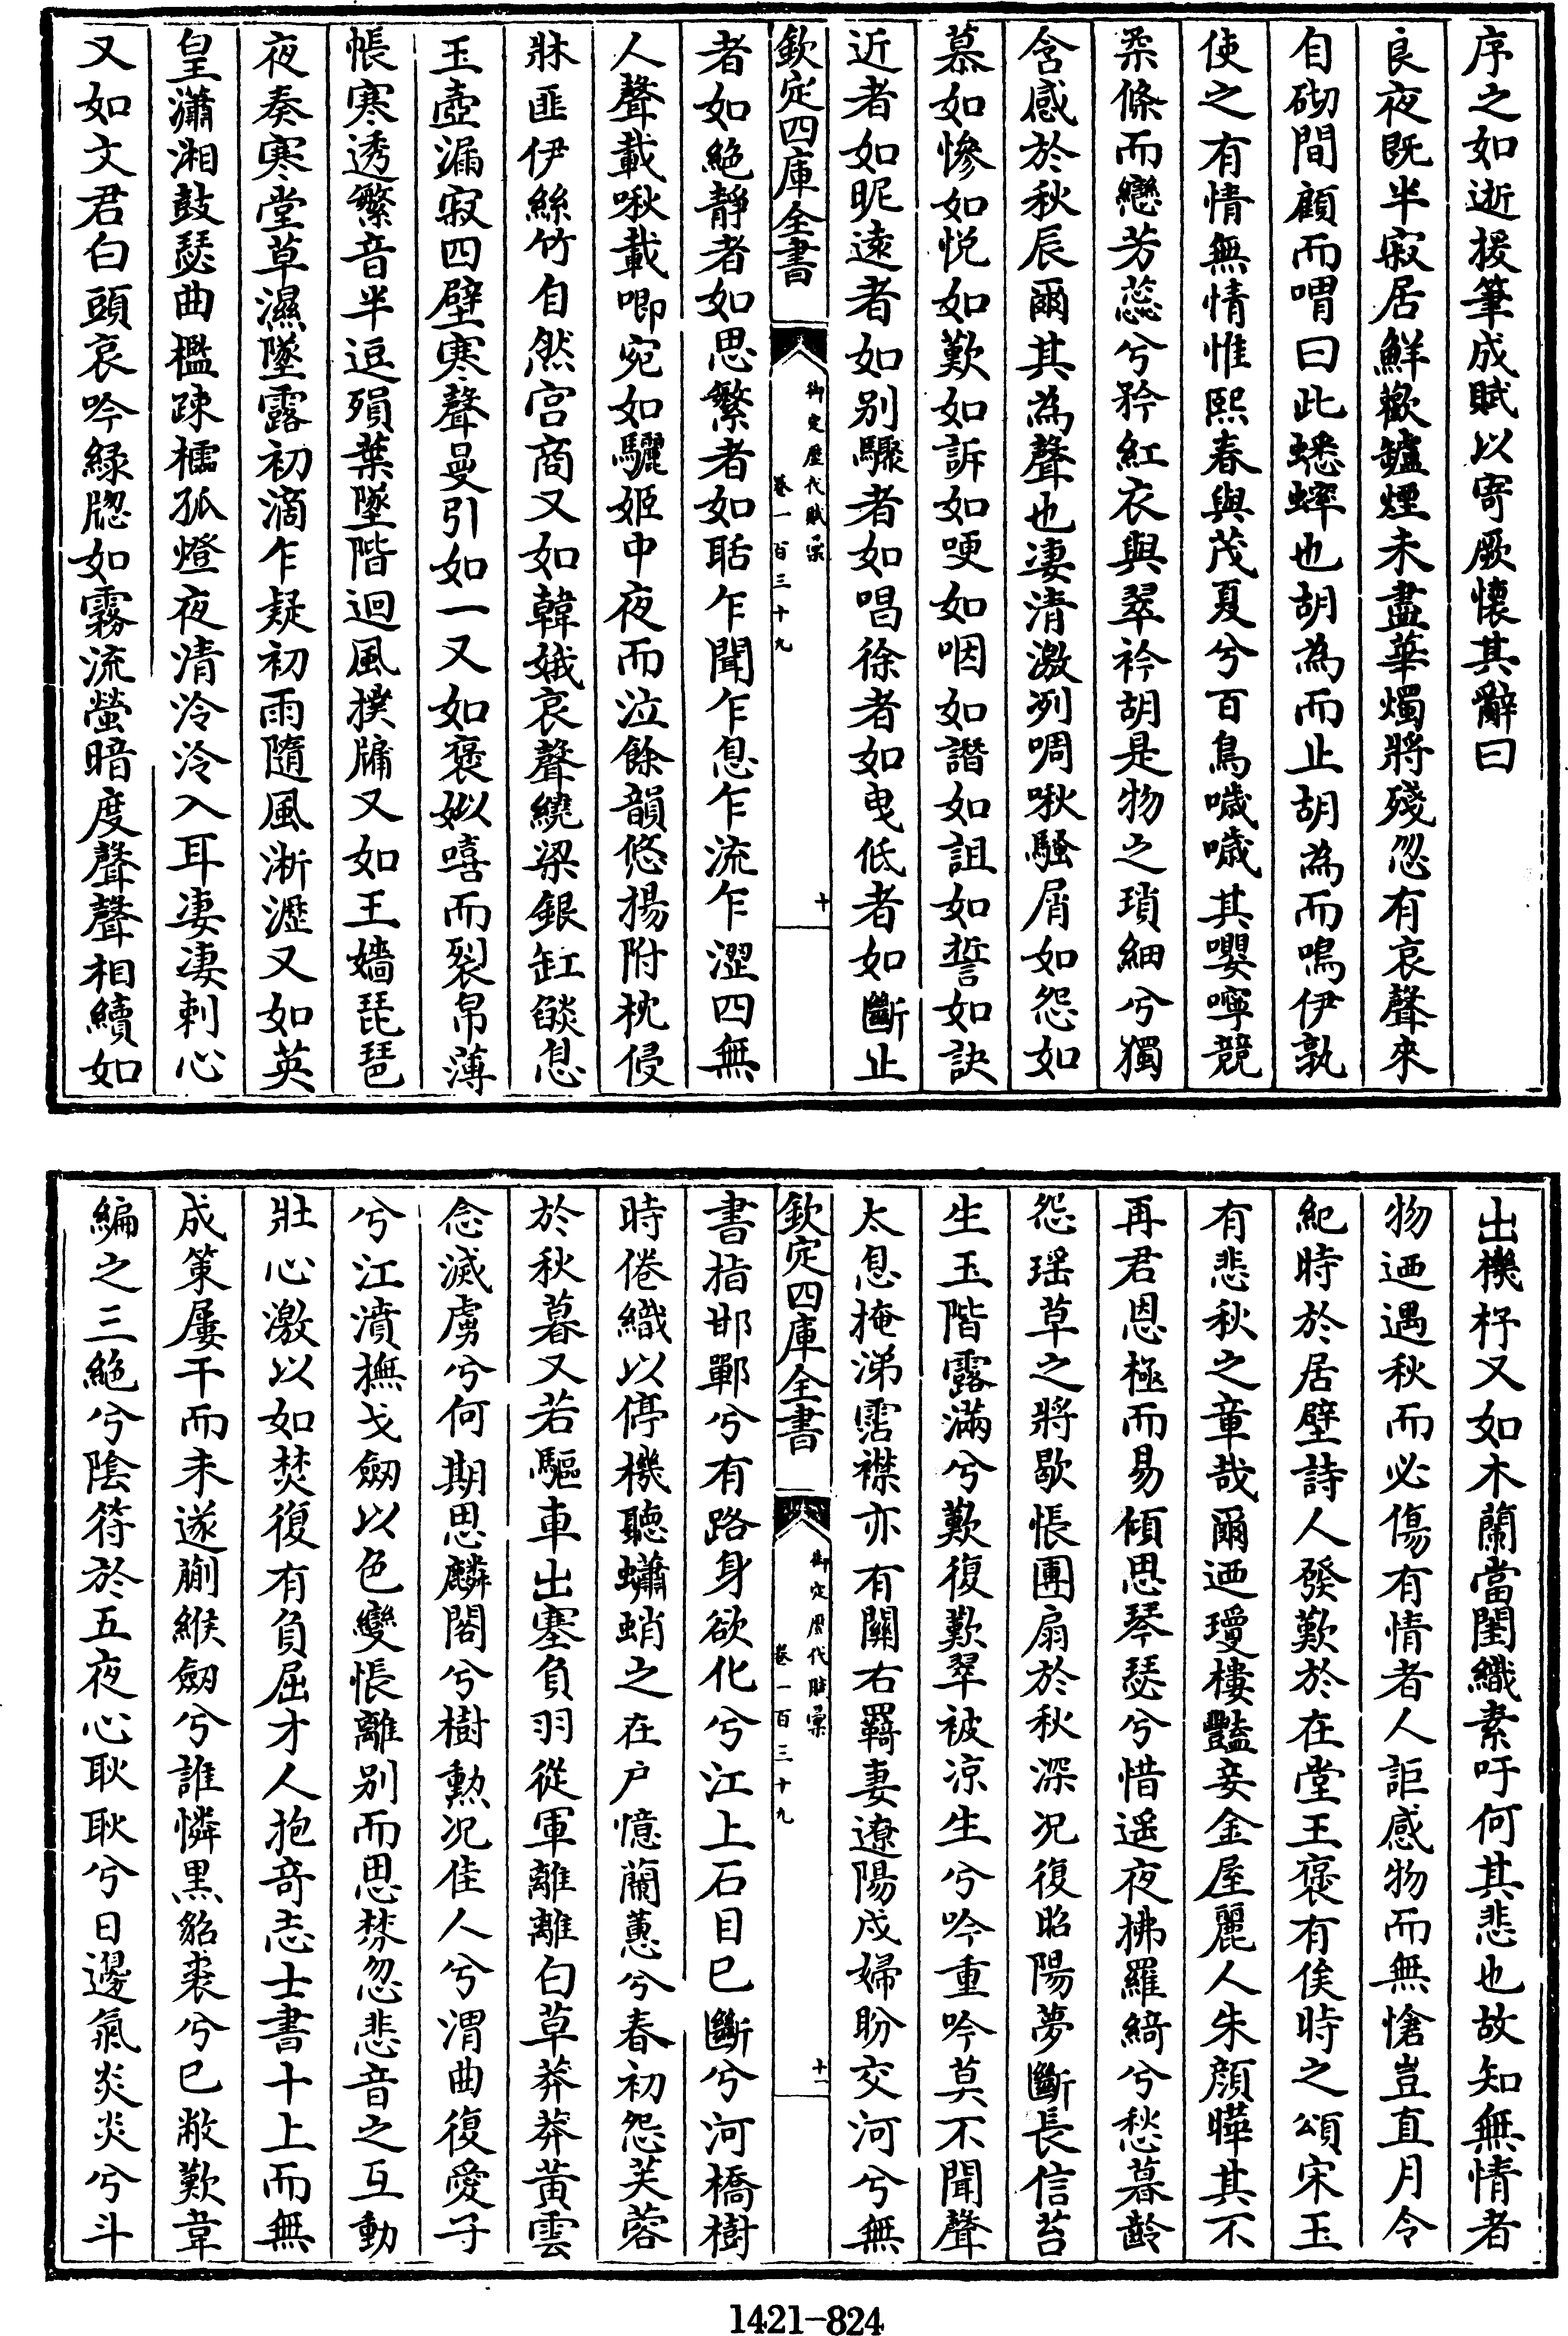 序之如逝援筆成賦以寄厥懷其辭曰
良夜既半寂居鮮歡鑪煙未盡華燭將殘忽有哀聲來
自砌間顧而喟曰此蟋蟀也胡為而止胡為而鳴伊孰
使之有情無情惟熙春與茂夏兮百鳥噦噦其嚶嚀競
柔條而戀芳蕊兮矜紅衣與翠衿胡是物之瑣細兮獨
含感於秋辰爾其為聲也凄清激冽啁啾騷屑如怨如
慕如慘如悦如歎如訴如哽如咽如譖如詛如誓如訣
近者如昵遠者如别驟者如唱徐者如曳低者如斷止
欽定四庫全書
御定歷代賦彙
卷一百三十九
十
者如絶靜者如思繁者如聒乍聞乍息乍流乍澀四無
人聲載啾載唧宛如驪姬中夜而泣餘韻悠揚附枕侵
牀匪伊絲竹自然宫商又如韓娥哀聲繞梁銀缸燄息
玉壺漏寂四壁寒聲曼引如一又如褒姒嘻而裂帛薄
帳寒透繁音半逗殞葉墜階迴風撲牖又如王嬙琵琶
夜奏寒堂草濕墜露初滴乍疑初雨隨風淅瀝又如英
皇瀟湘鼓瑟曲檻疎櫺孤燈夜清泠泠入耳凄凄刺心
又如文君白頭哀吟緑牕如霧流螢暗度聲聲相續如
出機杼又如木蘭當閨織素吁何其悲也故知無情者
物迺遇秋而必傷有情者人詎感物而無愴豈直月令
紀時於居壁詩人發歎於在堂王褒有俟時之頌宋玉
有悲秋之章哉爾迺瓊樓豔妾金屋麗人朱顔曄其不
再君恩極而易傾思琴瑟兮惜遥夜拂羅綺兮愁暮齡
怨瑶草之將歇悵團扇於秋深况復昭陽夢斷長信苔
生玉階露滿兮歎復歎翠被凉生兮吟重吟莫不聞聲
太息掩涕霑襟亦有關右羇妻遼陽戍婦盼交河兮無
欽定四庫全書
御定歷代賦彙
卷一百三十九
十一
書指邯鄲兮有路身欲化兮江上石目已斷兮河橋樹
時倦織以停機聽蠨蛸之在户憶蘭蕙兮春初怨芙蓉
於秋暮又若驅車出塞負羽從軍離離白草莽莽黄雲
念滅虜兮何期思麟閣兮樹勲况佳人兮渭曲復愛子
兮江濆撫戈劒以色變悵離别而思棼忽悲音之互動
壯心激以如焚復有負屈才人抱奇志士書十上而無
成策屢干而未遂蒯緱劒兮誰憐黒貂裘兮已敝歎韋
編之三絶兮陰符於五夜心耿耿兮日邊氣炎炎兮斗
1421-824